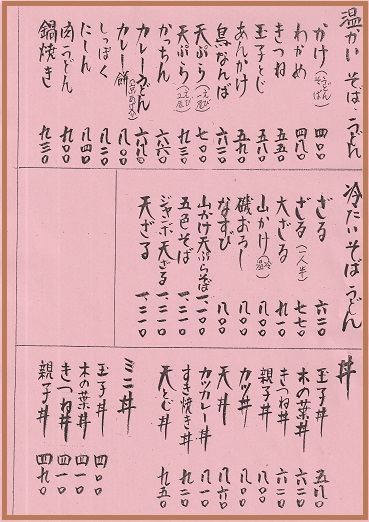 温かいそば・うどん
かけ(うどん そば) 四〇〇
わかめ 四八〇
きつね 五五〇
玉子とじ 五八〇
あんかけ 五九〇
鳥なんば
天ぷら(えび一尾) 七〇〇
天ぷら(えび二尾) 九三〇
かちん 六八〇
カレーうどん 六八〇
カレー餅 八〇〇
しっぽく 八二〇
にしん 八四〇
肉うどん 九〇〇
鍋焼き 九三〇
冷たいそば うどん
ざる 六二〇
ざる(一人半) 七七〇
大ざる 九一〇
山かけ(冷 温)
磯おろし 八〇〇
なすび 八〇〇
山かけ天ぷらそば 一、一〇〇
五色そば
ジャンボ天ざる
天ざる
丼
玉子丼 五八〇
木の葉丼 六二〇
きつね丼 六二〇
親子丼
カツ丼 八〇〇
天丼 八六〇
カツカレー丼
すき焼き丼
天とじ丼 九五〇
ミニ丼
玉子丼 四〇〇
木の葉丼 四一〇
きつね丼 四一〇
親子丼 四九〇